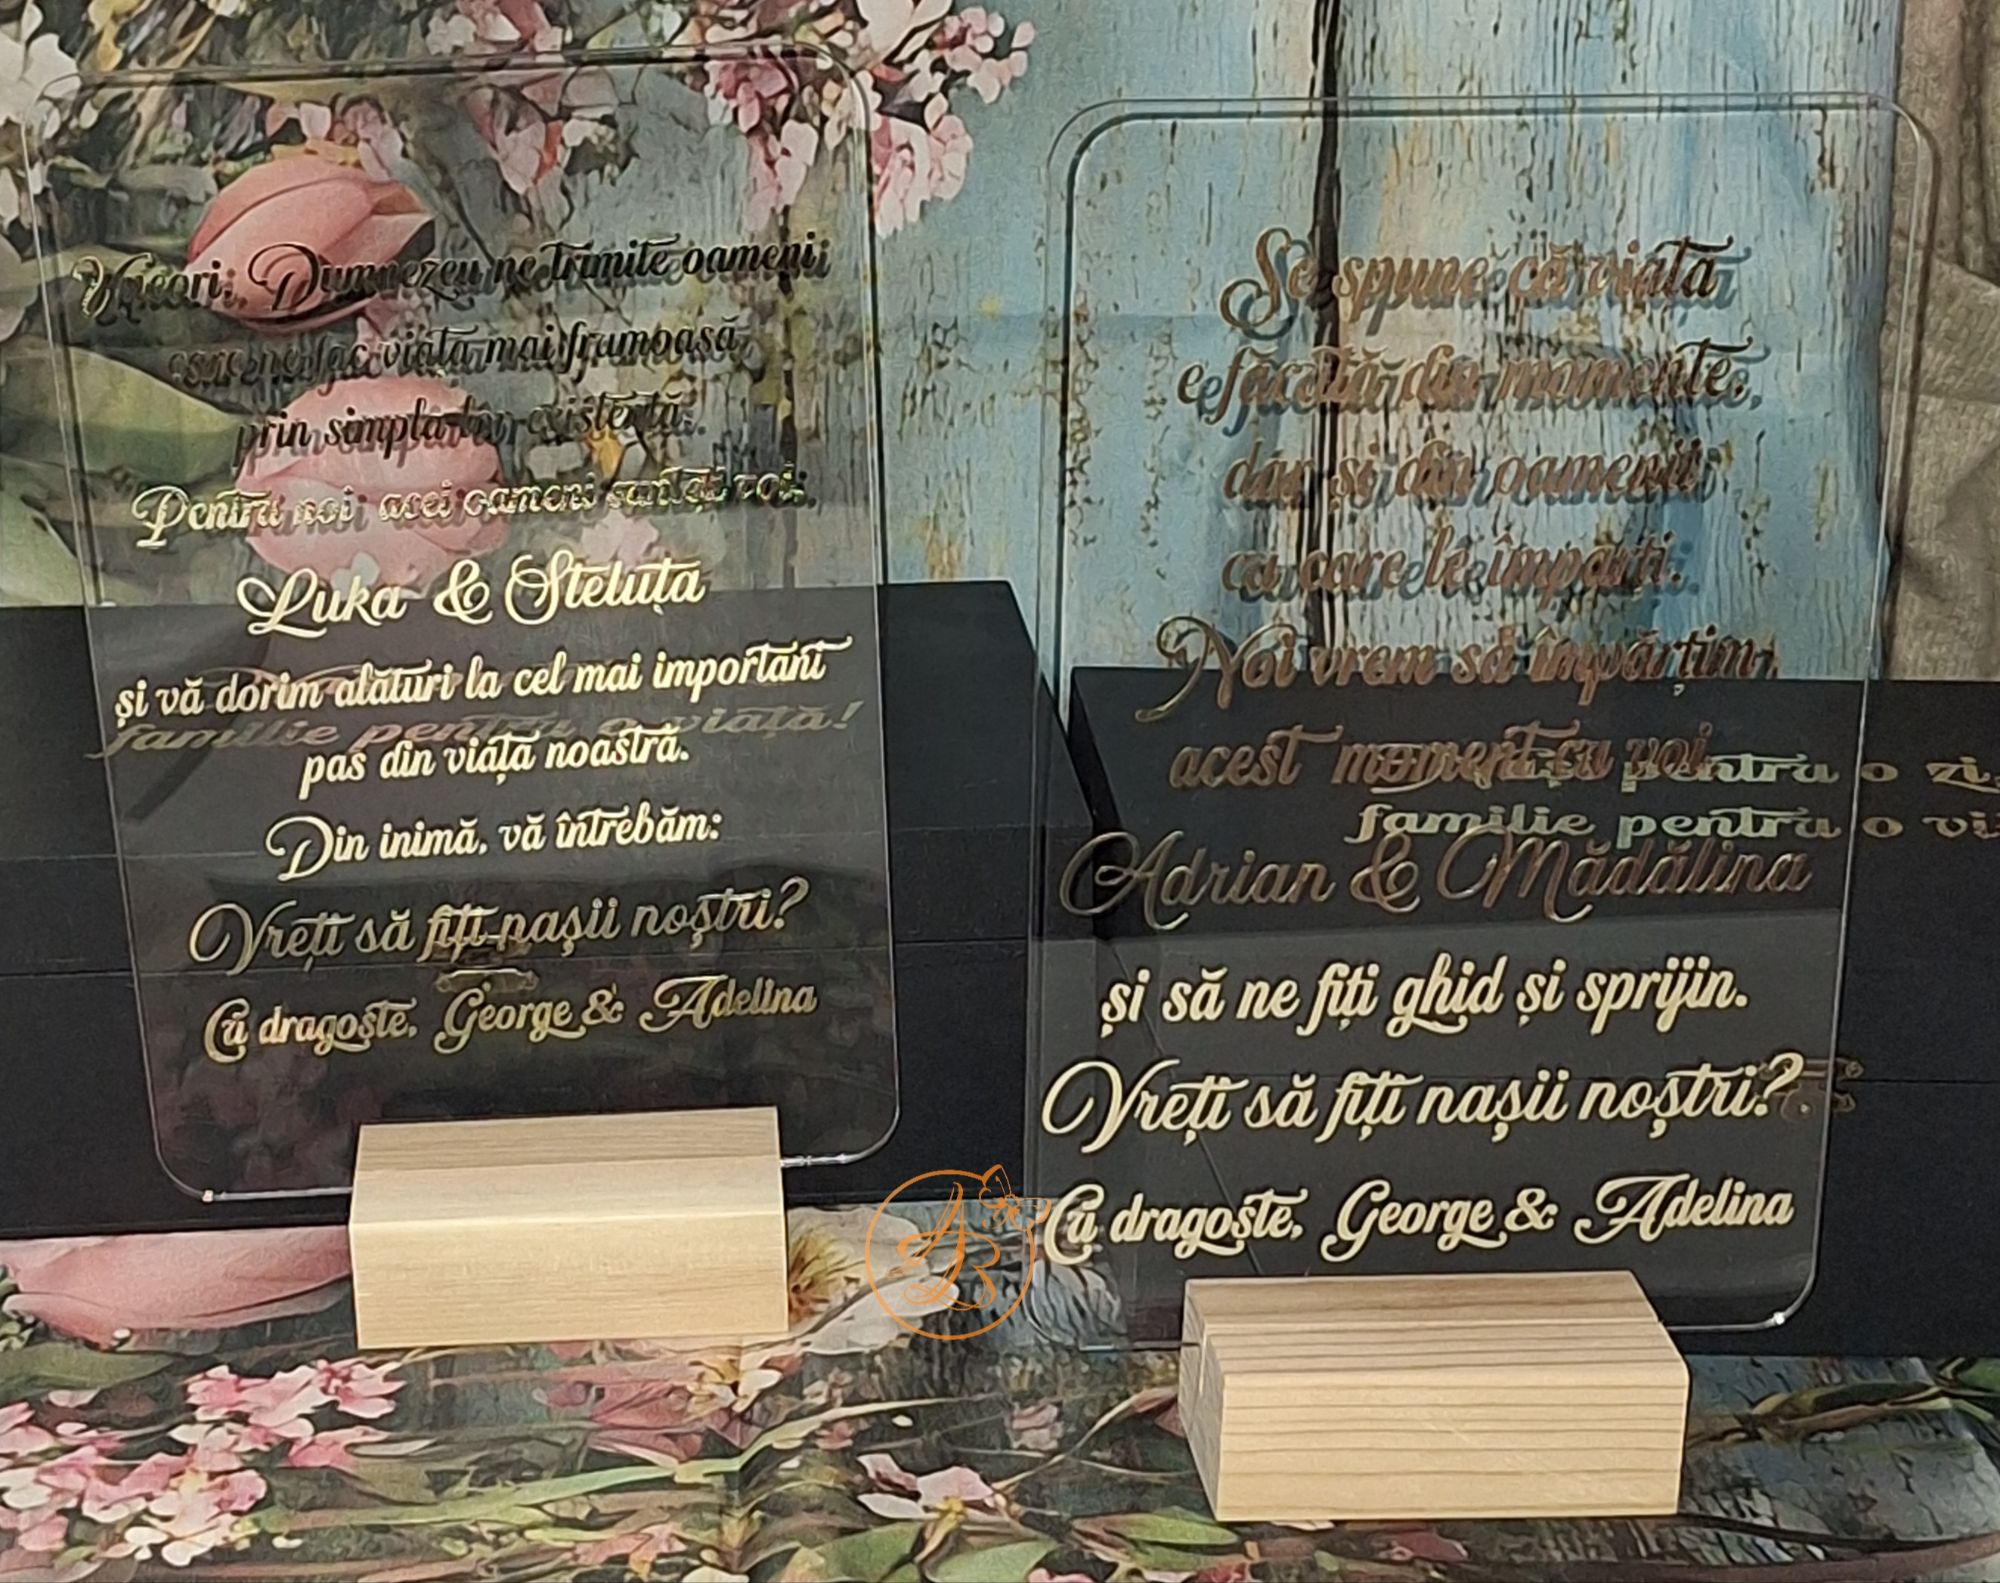 Uneori, Dumnezeu ne trimite oameni
care ne fac viața mai frumoasă
prin simpla lor existență.
Pentru noi acei oameni sunteți voi:
Luka & Steluța
și vă dorim alături la cel mai important
pas din viața noastră.
Din inimă, vă întrebăm:
Vreți să fiți nașii noștri?
Cu dragoste, George & Adelina
familie pentru o viață!
Se spune că viața
e făcută din momente,
dar și din oamenii
cu care le împarți.
Noi vrem să împărțim
acest moment cu voi
Adrian & Mădălina
și să ne fiți ghid și sprijin.
Vreți să fiți nașii noștri?
Cu dragoste, George & Adelina
pentru o zi,
familie pentru o
AB